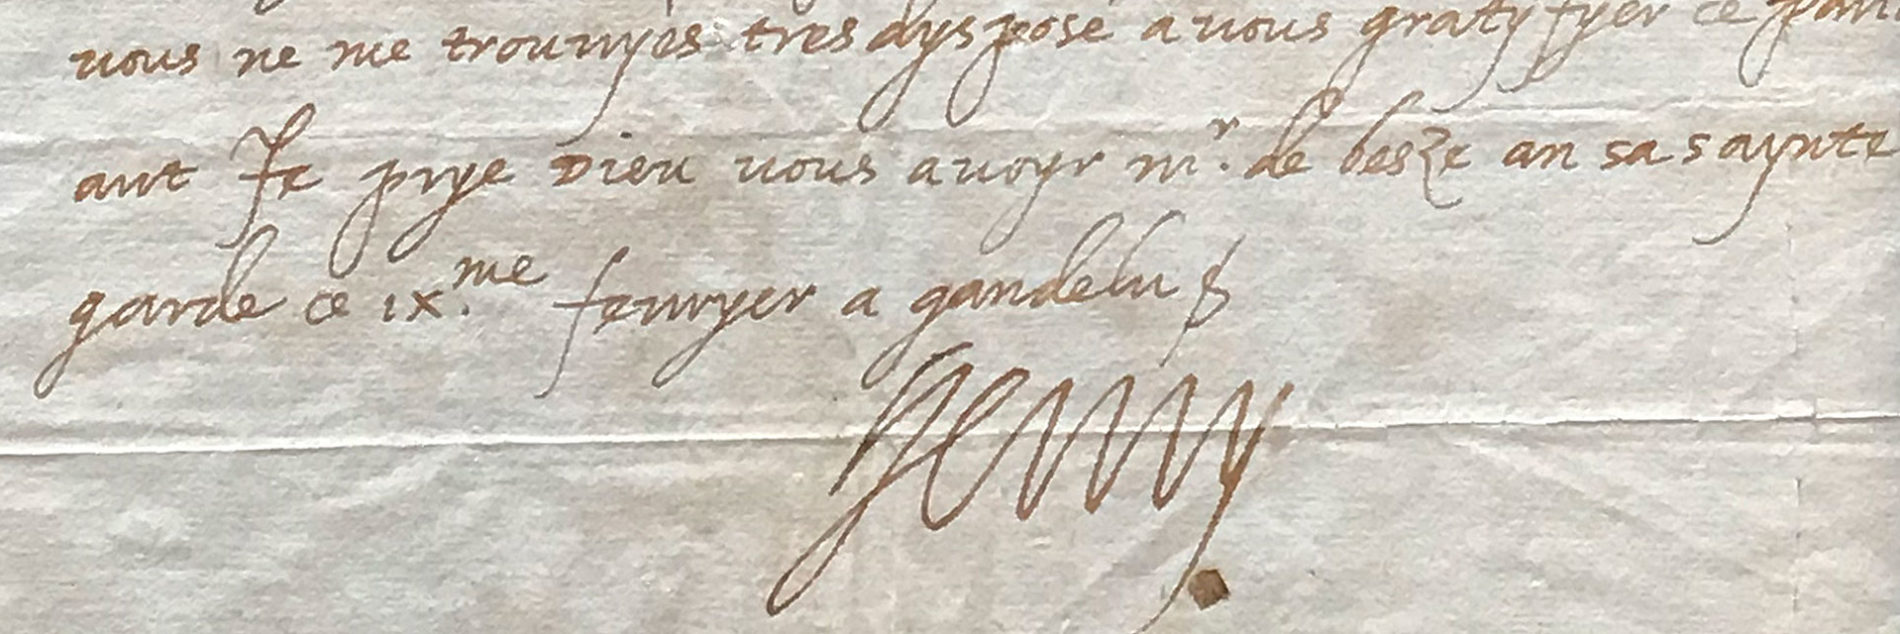 vous ne me trouvyes tres dyspose a vous gratyfyer ce pan
ant Je prye Dieu vous avoyr mr. de besze an sa saynte
garde ce ix.me fevryer a gandelu
Henry